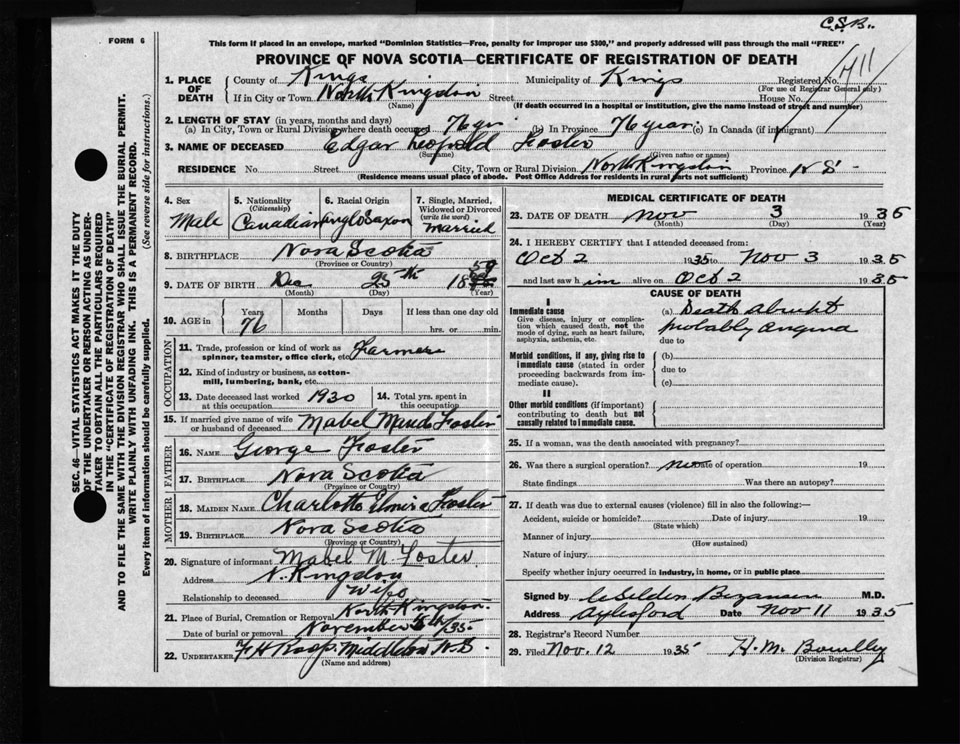 C.S.B.
FORM 6
This form if placed in an envelope, marked "Dominion Statistics—Free, penalty for improper use $300," and properly addressed will pass through the mail "FREE"
PROVINCE OF NOVA SCOTIA—CERTIFICATE OF REGISTRATION OF DEATH
SEC. 46—VITAL STATISTICS ACT MAKES IT THE DUTY
OF THE UNDERTAKER OR PERSON ACTING AS UNDER-
TAKER TO OBTAIN ALL THE PARTICULARS REQUIRED
IN THE "CERTIFICATE OF REGISTRATION OF DEATH"
AND TO FILE THE SAME WITH THE DIVISION REGISTRAR WHO SHALL ISSUE THE BURIAL PERMIT.
WRITE PLAINLY WITH UNFADING INK. THIS IS A PERMANENT RECORD.
Every item of information should be carefully supplied. (See reverse side for instructions.)
1. PLACE OF DEATH County of Kings Municipality of Kings Registered No.
(For use of Registrar General only)
If in City or Town North Kingston Street House No.
(Name) (If death occurred in a hospital or institution, give the name instead of street and number)
2. LENGTH OF STAY (in years, months and days)
(a) In City, Town or Rural Division where death occurred 76 yrs (b) In Province 76 years (c) In Canada (if immigrant)
3. NAME OF DECEASED Edgar Leopold Foster
(Surname) (Given name or names)
RESIDENCE No. Street City, Town or Rural Division North Kingston Province N S
(Residence means usual place of abode. Post Office Address for residents in rural parts not sufficient)
4. Sex Male
5. Nationality (Citizenship) Canadian
6. Racial Origin Anglo Saxon
7. Single, Married, Widowed or Divorced (write the word) Married
8. BIRTHPLACE Nova Scotia
(Province or Country)
9. DATE OF BIRTH Dec 25th 1859
(Month) (Day) (Year)
10. AGE in Years 76 Months Days If less than one day old
hrs. or min.
OCCUPATION
11. Trade, profession or kind of work as spinner, teamster, office clerk, etc. Farmer
12. Kind of industry or business, as cotton-mill, lumbering, bank, etc.
13. Date deceased last worked at this occupation 1930 14. Total yrs. spent in this occupation
15. If married give name of wife or husband of deceased Mabel Foster
FATHER
16. NAME George Foster
17. BIRTHPLACE Nova Scotia
(Province or Country)
MOTHER
18. MAIDEN NAME Charlotte Foster
19. BIRTHPLACE Nova Scotia
(Province or Country)
20. Signature of informant Mabel M. Foster
Address N. Kingston
Relationship to deceased Wife
21. Place of Burial, Cremation or Removal North Kingston.
Date of burial or removal November /35
22. UNDERTAKER F H Roop. Middleton N.S.
(Name and address)
MEDICAL CERTIFICATE OF DEATH
23. DATE OF DEATH Nov 3 1935
(Month) (Day) (Year)
24. I HEREBY CERTIFY that I attended deceased from:
Oct 2 1935 to Nov 3 1935
and last saw him alive on Oct 2 1935
CAUSE OF DEATH
I
Immediate cause
Give disease, injury or complication which caused death, not the mode of dying, such as heart failure, asphyxia, asthenia, etc.
(a) Death abrupt
probably angina
due to
Morbid conditions, if any, giving rise to immediate cause (stated in order proceeding backwards from immediate cause).
(b)
due to
(c)
II
Other morbid conditions (if important) contributing to death but not causally related to immediate cause.
25. If a woman, was the death associated with pregnancy?
26. Was there a surgical operation? Date of operation 19
State findings Was there an autopsy?
27. If death was due to external causes (violence) fill in also the following:—
Accident, suicide or homicide? Date of injury 19
(State which)
Manner of injury
(How sustained)
Nature of injury
Specify whether injury occurred in industry, in home, or in public place
Signed by Selden Bezanson M.D.
Address Aylesford Date Nov 11 1935
28. Registrar's Record Number
29. Filed Nov. 12 1935 H. M.
(Division Registrar)